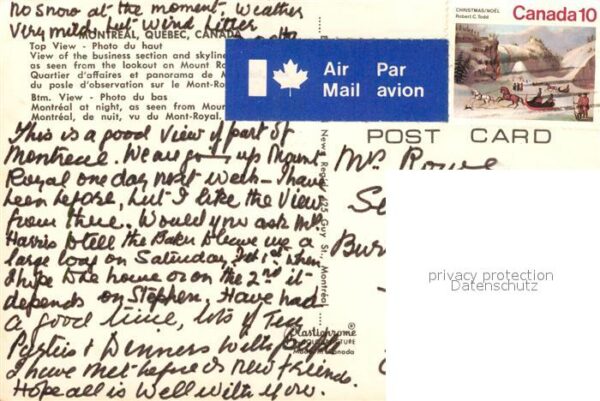 No snow at the moment. Weather
Very mild but Wind bitter
MONTRÉAL, QUÉBEC, CANADA
Top View - Photo du haut
View of the business section and skyline
as seen from the lookout on Mount Ro
Quartier d'affaires et panorama de M
du poste d'observation sur le Mont-Roy
Btm. View - Photo du bas
Montréal at night, as seen from Mour
Montréal, de nuit, vu du Mont-Royal.
Air Par
Mail avion
CHRISTMAS/NOËL
Robert C. Todd
Canada 10
POST CARD
This is a good View of part of
Montreal. We are going up Mount
Royal one day next week - I have
been before, but I like the View
from there. Would you ask Mr.
Harris to tell the Baker to leave me a
large loaf on Saturday, 1st, when
I hope to be home or on the 2nd it
depends on Stephen. Have had
a good time, lots of Tea
Parties + Dinners with people
I have met before & new friends.
Hope all is Well with you.
News Reg'd. 425 Guy St., Montréal
Plastichrome
Made in Canada
Mrs Rowe
Se
Bur
privacy protection
Datenschutz